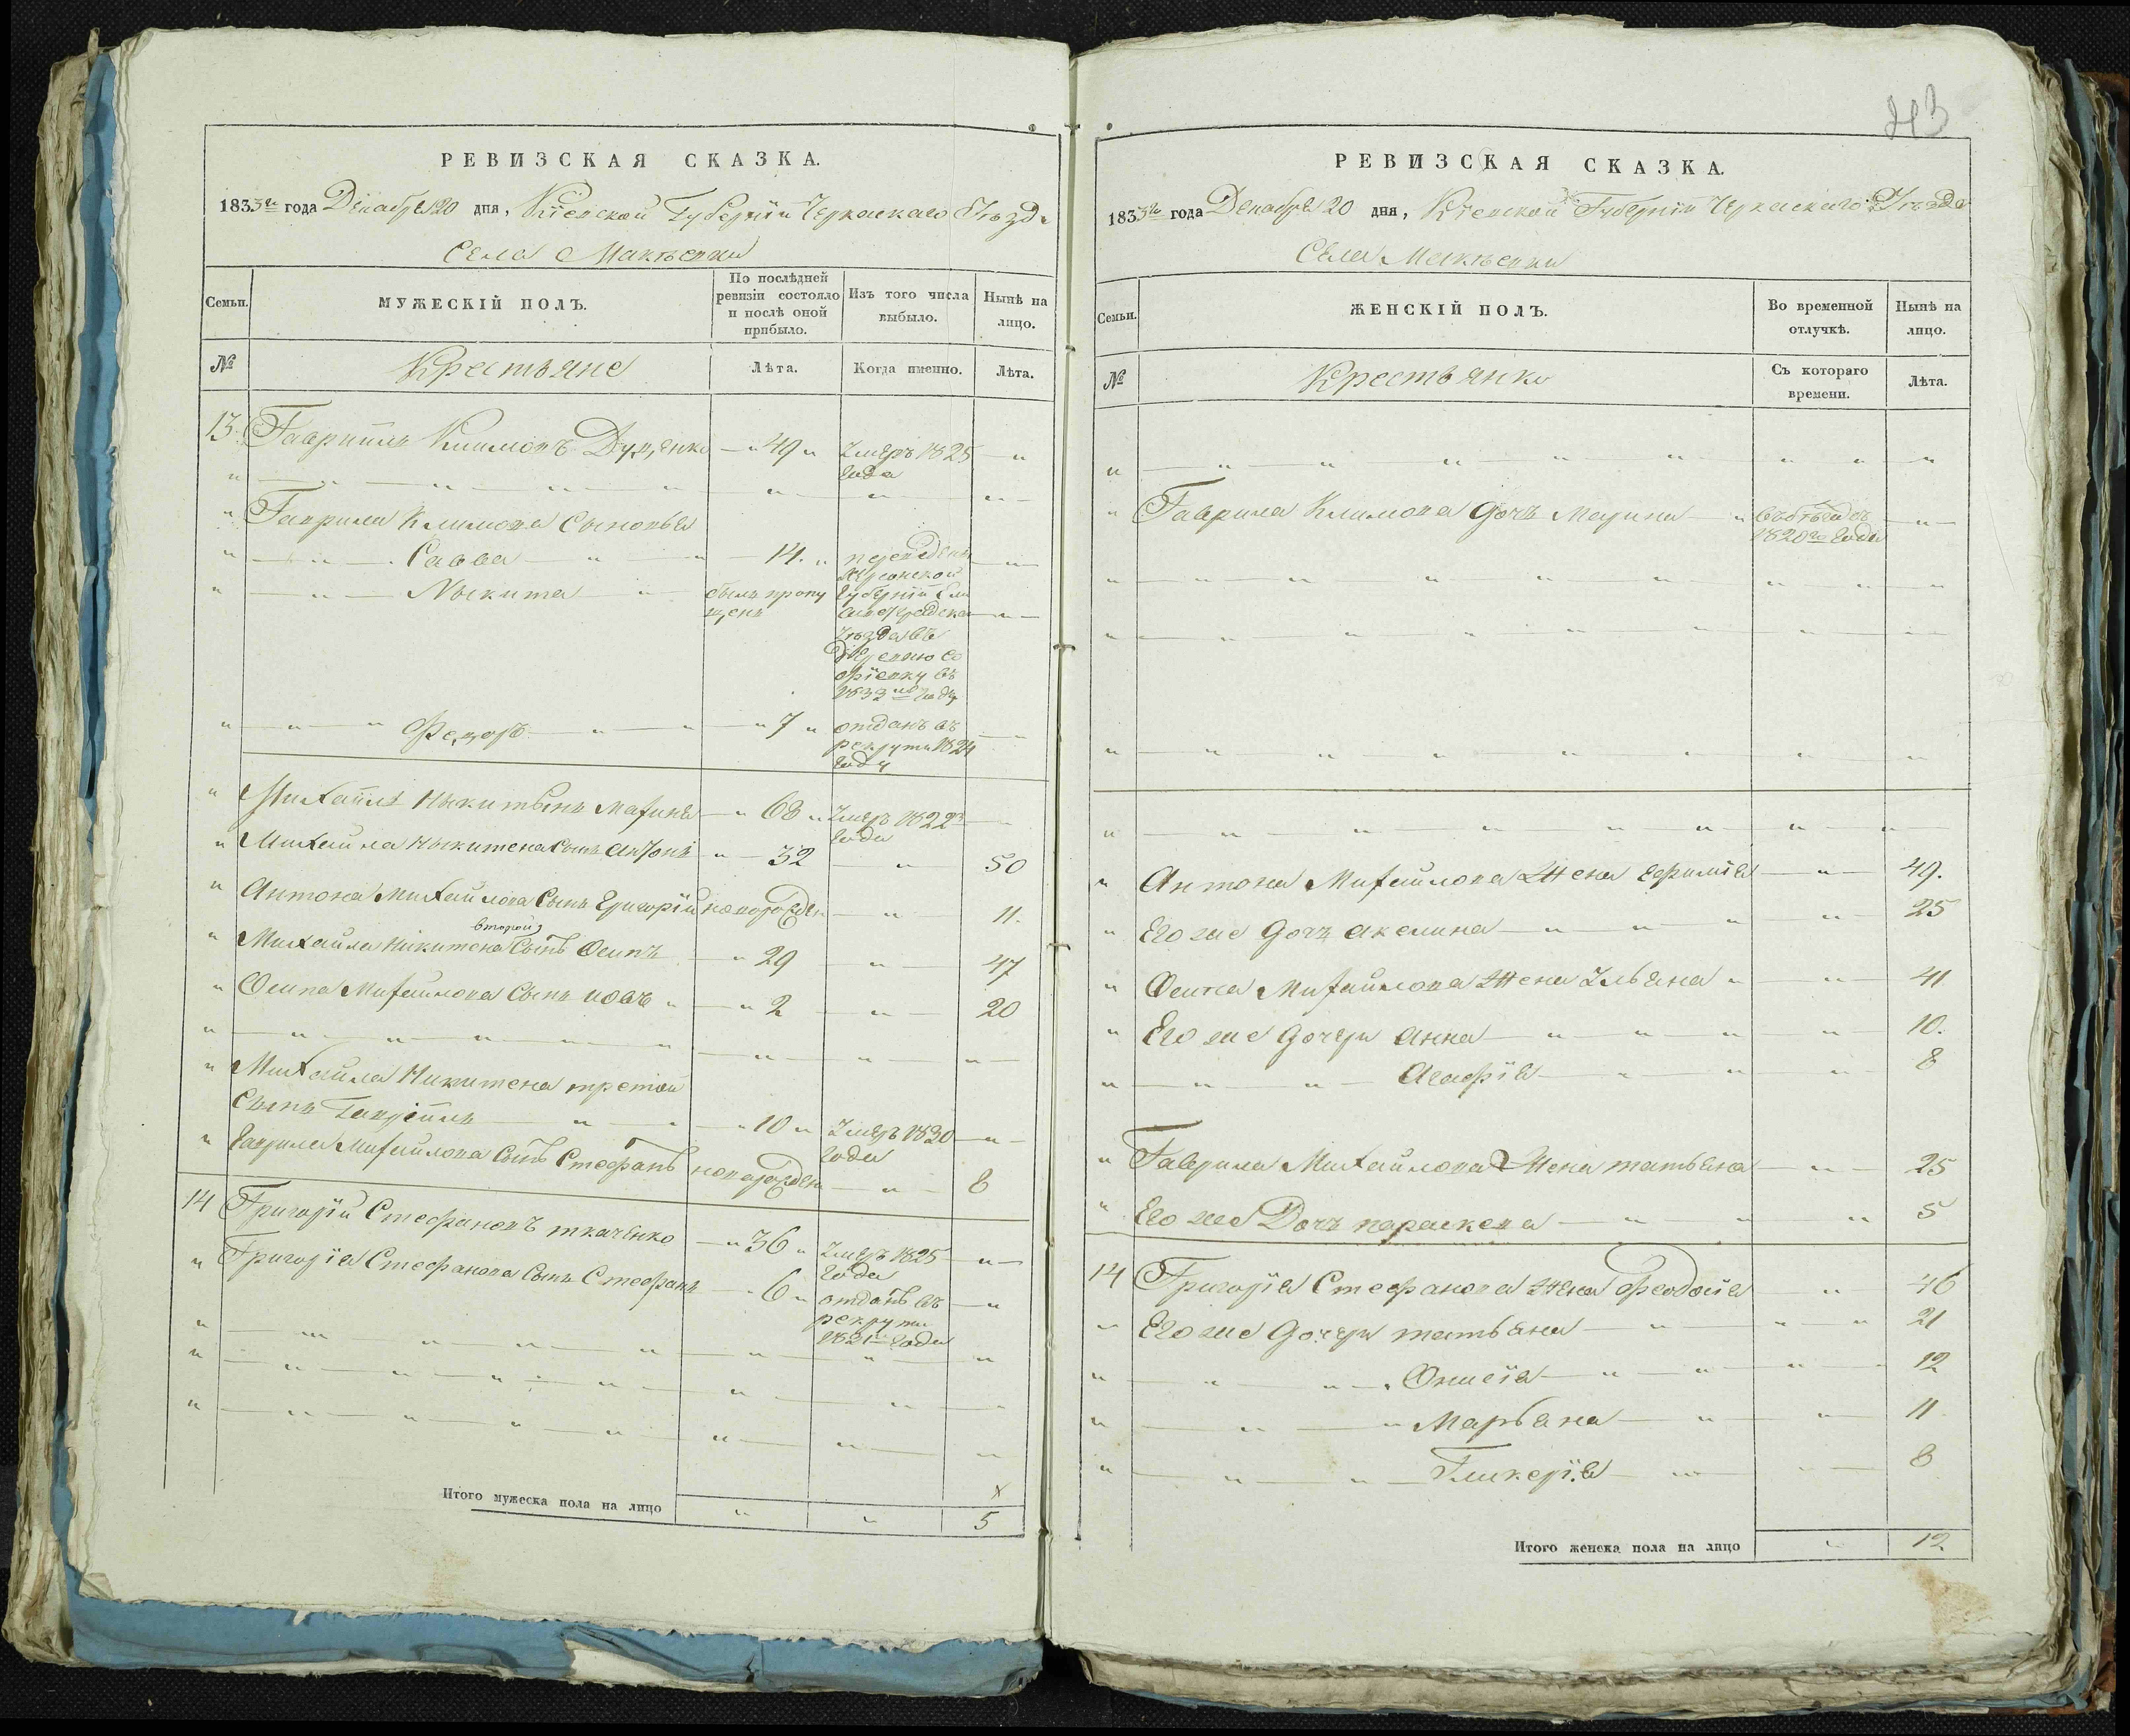 РЕВИЗСКАЯ СКАЗКА.
1833го года Декабря 20 дня, Кіевской Губерніи Черкаскаго Уѣзда
Села Макѣевки
Семьи. МУЖЕСКІЙ ПОЛЪ. По послѣдней ревизіи состояло и послѣ оной прибыло. Изъ того числа выбыло. Нынѣ на лицо.
№ Крестьяне Лѣта. Когда именно. Лѣта.
13 Гавріилъ Климовъ 49 Умеръ 1825 года
Гаврила Климова Сыновья
Савва 14. переведены Херсонской
Никита былъ пропущенъ Губерніи
Уѣзда въ
Деревню
въ
1832мъ году
Федоръ 7 отданъ въ
рекруты 1824
году
Михаилъ Никитинъ 68 Умеръ 1822 года
Михайла Никитена Сынъ Антонъ 32 50
Антона Михайлова Сынъ Григорій новорожден 11.
второй
Михайла Никитена Сынъ Осипъ 29 47
Осипа Михайлова Сынъ Иовъ 2 20
Михайла Никитена третой
Сынъ Гавріилъ 10 Умеръ 1830 года
Гаврила Михайлова Сынъ Стефанъ новорожден 8
14 Григорій Стефановъ ткаченко 36 Умеръ 1825 года
Григорія Стефанова Сынъ Стефанъ 6 отданъ въ
рекруты
года
Итого мужеска пола на лицо 5
243
РЕВИЗСКАЯ СКАЗКА.
1833го года Декабря 20 дня, Кіевской Губерніи Черкаскаго Уѣзда
Села Макѣевки
Семьи. ЖЕНСКІЙ ПОЛЪ. Во временной отлучкѣ. Нынѣ на лицо.
№ Крестьянки Съ котораго времени. Лѣта.
Гаврила Климова дочь Марина въ бѣгахъ
1820го года
Антона Михайлова Жена Ефимія 49.
Его же дочь Акелина 25
Осипа Михайлова Жена Ульяна 41
Его же дочери Анна 10.
Агафія 8
Гаврила Михайлова Жена татьяна 25
Его же Дочь параскева 5
14 Григорія Стефанова Жена феодосія 46
Его же дочери татьяна 21
Онисія 12
Марьяна 11
Гликерія 8
Итого женска пола на лицо 12